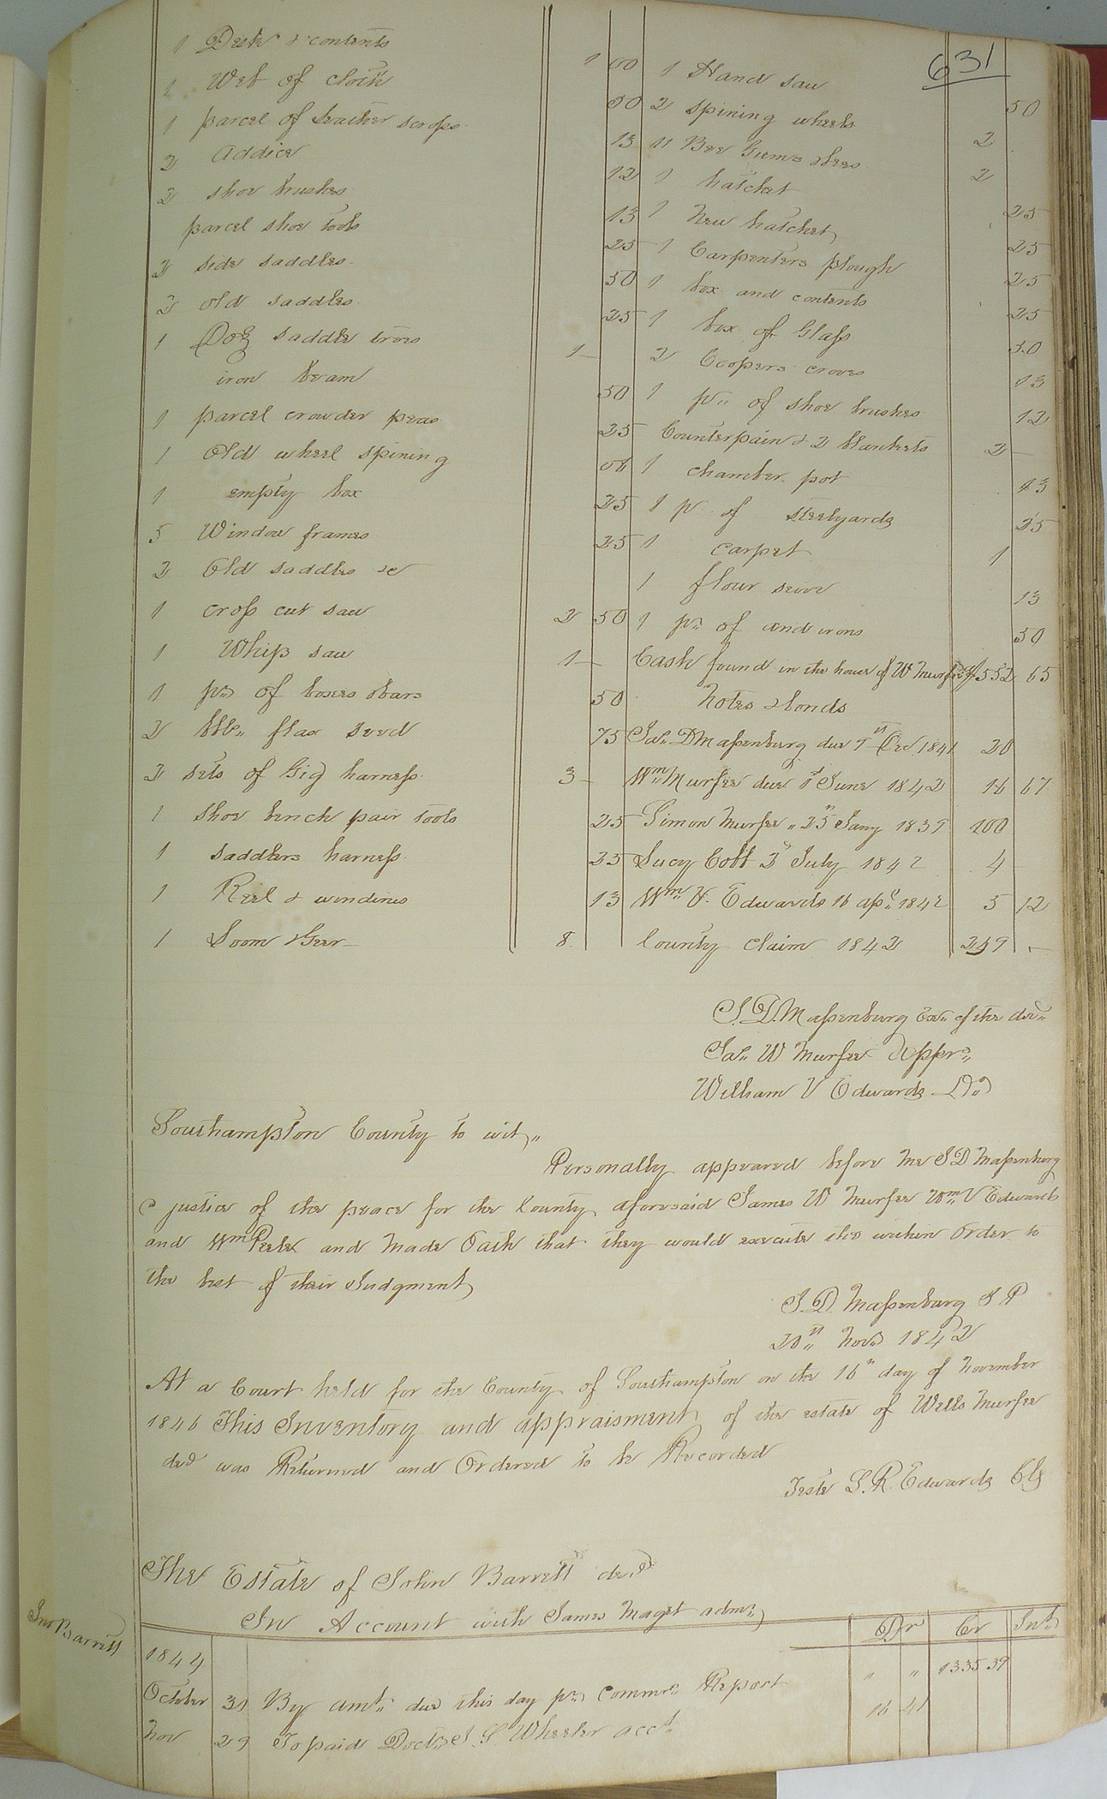 631
1 Desk & contents 1 00
1 Web of cloth 50
1 parcel of leather scraps 13
2 Addice 12
2 shoe brushes 13
parcel shoe tools 25
2 side saddles 50
2 old saddles 25
1 Doz saddle trees 1 —
iron beam 50
1 parcel crowder peas 25
1 Old wheel spining 06
1 empty box 25
5 Window frames 25
2 Old saddles &c
1 cross cut saw 2 50
1 Whip saw 1 —
1 pr of boxes & bars 50
2 bbls flax seed 75
2 sets of Gig harness 3 —
1 shoe bench pair tools 25
1 saddlers harness 25
1 Reel & windines 13
1 Loom & Gear 8
1 Hand saw 50
2 spining wheels 2
11 Bee Gums & bees 2
1 hatchet 25
1 New hatchet 25
1 Carpenters plough 25
1 box and contents 25
1 box of Glass 50
2 Coopers croves 13
1 pr of shoe brushes 12
Counterpain & 2 blankets 2 —
1 chamber pot 13
1 pr of steelyards 25
1 carpet 1
1 flour seive 13
1 pr of and irons 50
Cash found in the house of W Murfee 552 65
Notes & bonds
Jas. D Massenburg due Dec 1841 20
Wm Murfee due 1st June 1842 16 67
Simon Murfee " 25th Jany 1839 100
Lucy Cobb 3d July 1842 4
Wm V. Edwards 16 apl 1842 5 12
County claim 1842 —
J. D. Massenburg Exr of the decd
Jas. W Murfee Apprs
William V Edwards Do
Southampton County to wit,
Personally appeared before me J D Massenburg
a justice of the peace for the County aforesaid James W Murfee Wm V Edwards
and Wm and made Oath that they would execute the within Order to
the best of their Judgment
J. D. Massenburg J P
Novr 1842
At a Court held for the County of Southampton on the 16th day of November
1846 This Inventory and appraisment of the estate of Wells Murfee
decd was Returned and Ordered to be Recorded
Teste L. R. Edwards Clk
The Estate of John Barrett decd
Jno Barrett
In Account with James Maget admr
Dr Cr Int
1844
October 31 By amt. due this day pr Commrs Report " " 1335 39
Nov 29 To paid Doctr Wheeler acct. 16 41